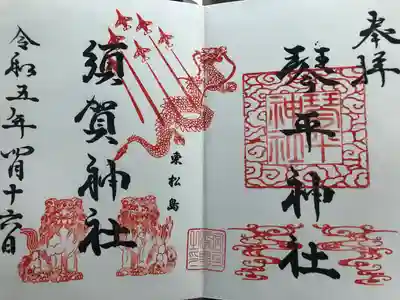 奉拝
琴平神社
琴平
神社
東松島
須賀神社
令和五年四月十六日